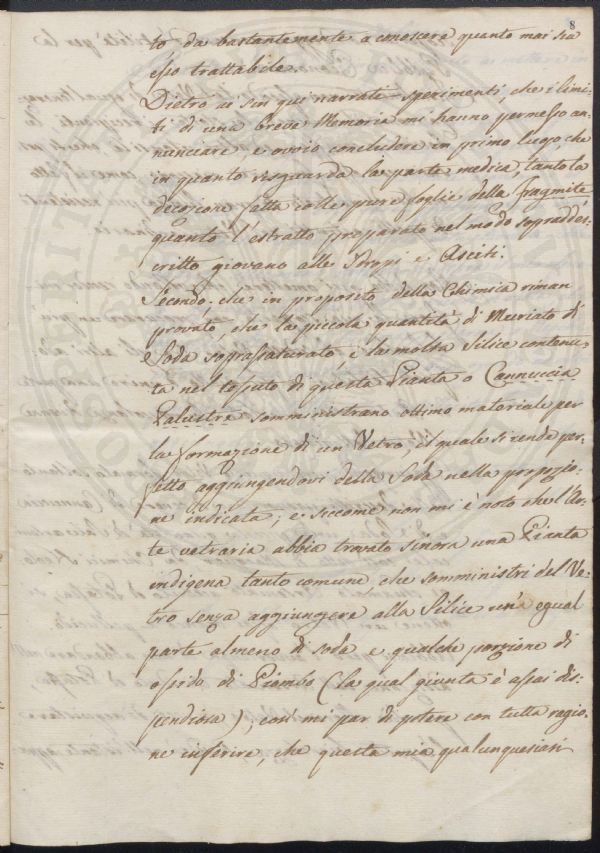 8
to da bastantemente a conoscere quanto mai sia
esso trattabile.
Dietro ai sin qui narrati sperimenti, che i limi-
ti di una breve Memoria mi hanno permesso an-
nunciare, è ovvio concludere in primo luogo che
in quanto risguarda la parte medica, tanto la
decozione fatta colle pure foglie della fragmite
quanto l'estratto preparato nel modo sopraddes-
critto giovano alle Idropi e Asciti.
Secondo, che in proposito della Chimica riman
provato, che la piccola quantità di Muriato di
Soda soprassaturato, e la molta Silice contenu-
ta nel tessuto di questa Pianta o Cannuccia
Palustre somministrano ottimo materiale per
la formazione di un Vetro, il quale si renda per-
fetto aggiungendovi della Soda nella proporzio-
ne indicata; e siccome non mi è noto che l'Ar-
te vetraria abbia trovato sinora una Pianta
indigena tanto comune, che somministri del Ve-
tro senza aggiungere alla Silice un'egual
parte almeno di soda e qualche porzione di
ossido di Piombo (la qual giunta è assai dis-
pendiosa), così mi par di potere con tutta ragio-
ne inferire, che questa mia qualunquesiasi